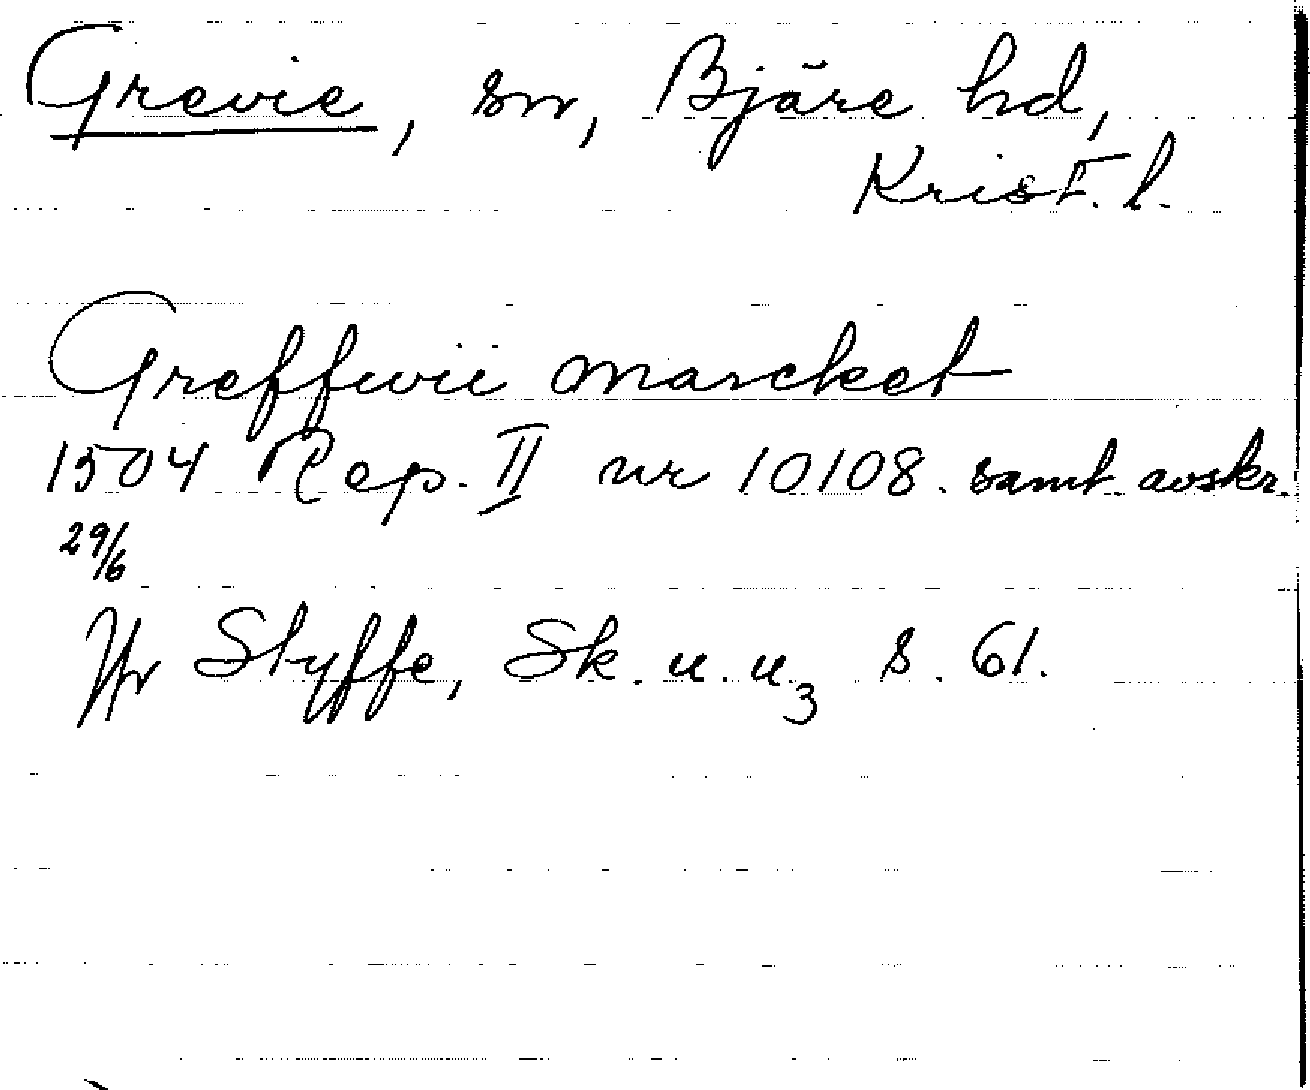 Grevie, sn, Bjäre hd,
Krist. l.
Greffwii marcket
1504 Rep. II nr 10108. samt avskr.
29/6
Jfr Styffe, Sk. u. u3 s. 61.